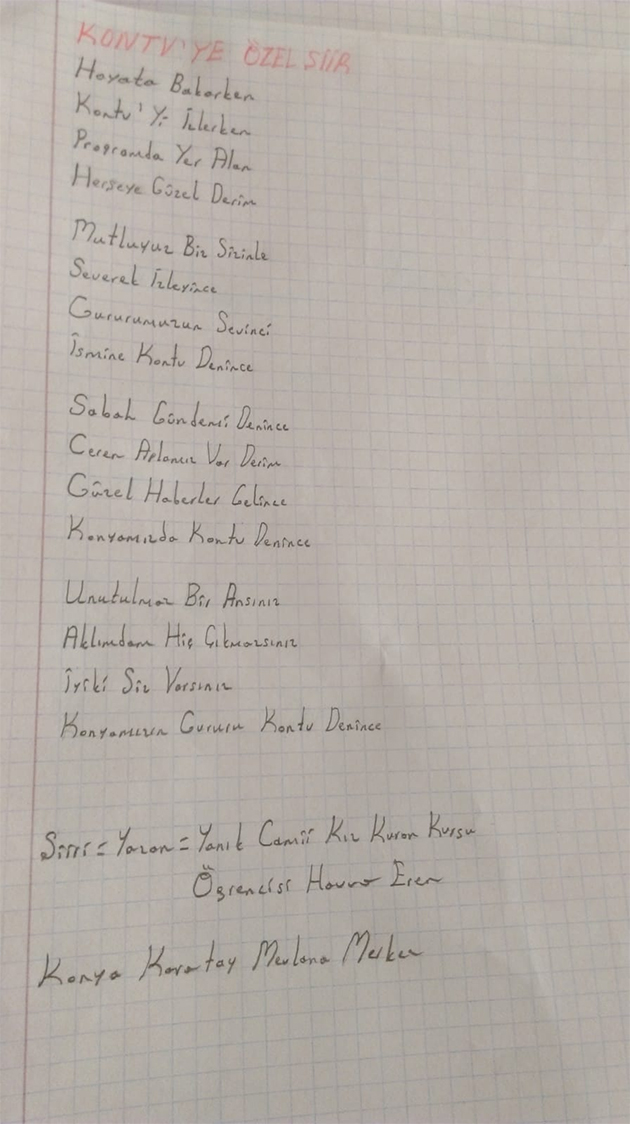 KONTV'YE ÖZEL SİİR
Hayata Bakarken
Kontv'Yi İzlerken
Programda Yer Alan
Herseye Güzel Derim
Mutluyuz Biz Sizinle
Severek İzleyince
Gururumuzun Sevinci
İsmine Kontv Denince
Sabah Gündemi Denince
Ceren Ablamız Var Derim
Güzel Haberler Gelince
Konyamızda Kontv Denince
Unutulmaz Bir Ansınız
Aklımdam Hiç Çıkmazsınız
İyiki Siz Varsınız
Konyamızın Gururu Kontv Denince
Siiri = Yazan = Yanık Camii Kız Kuran Kursu
Ögrencisi Havva Eren
Konya Karatay Mevlana Merkez